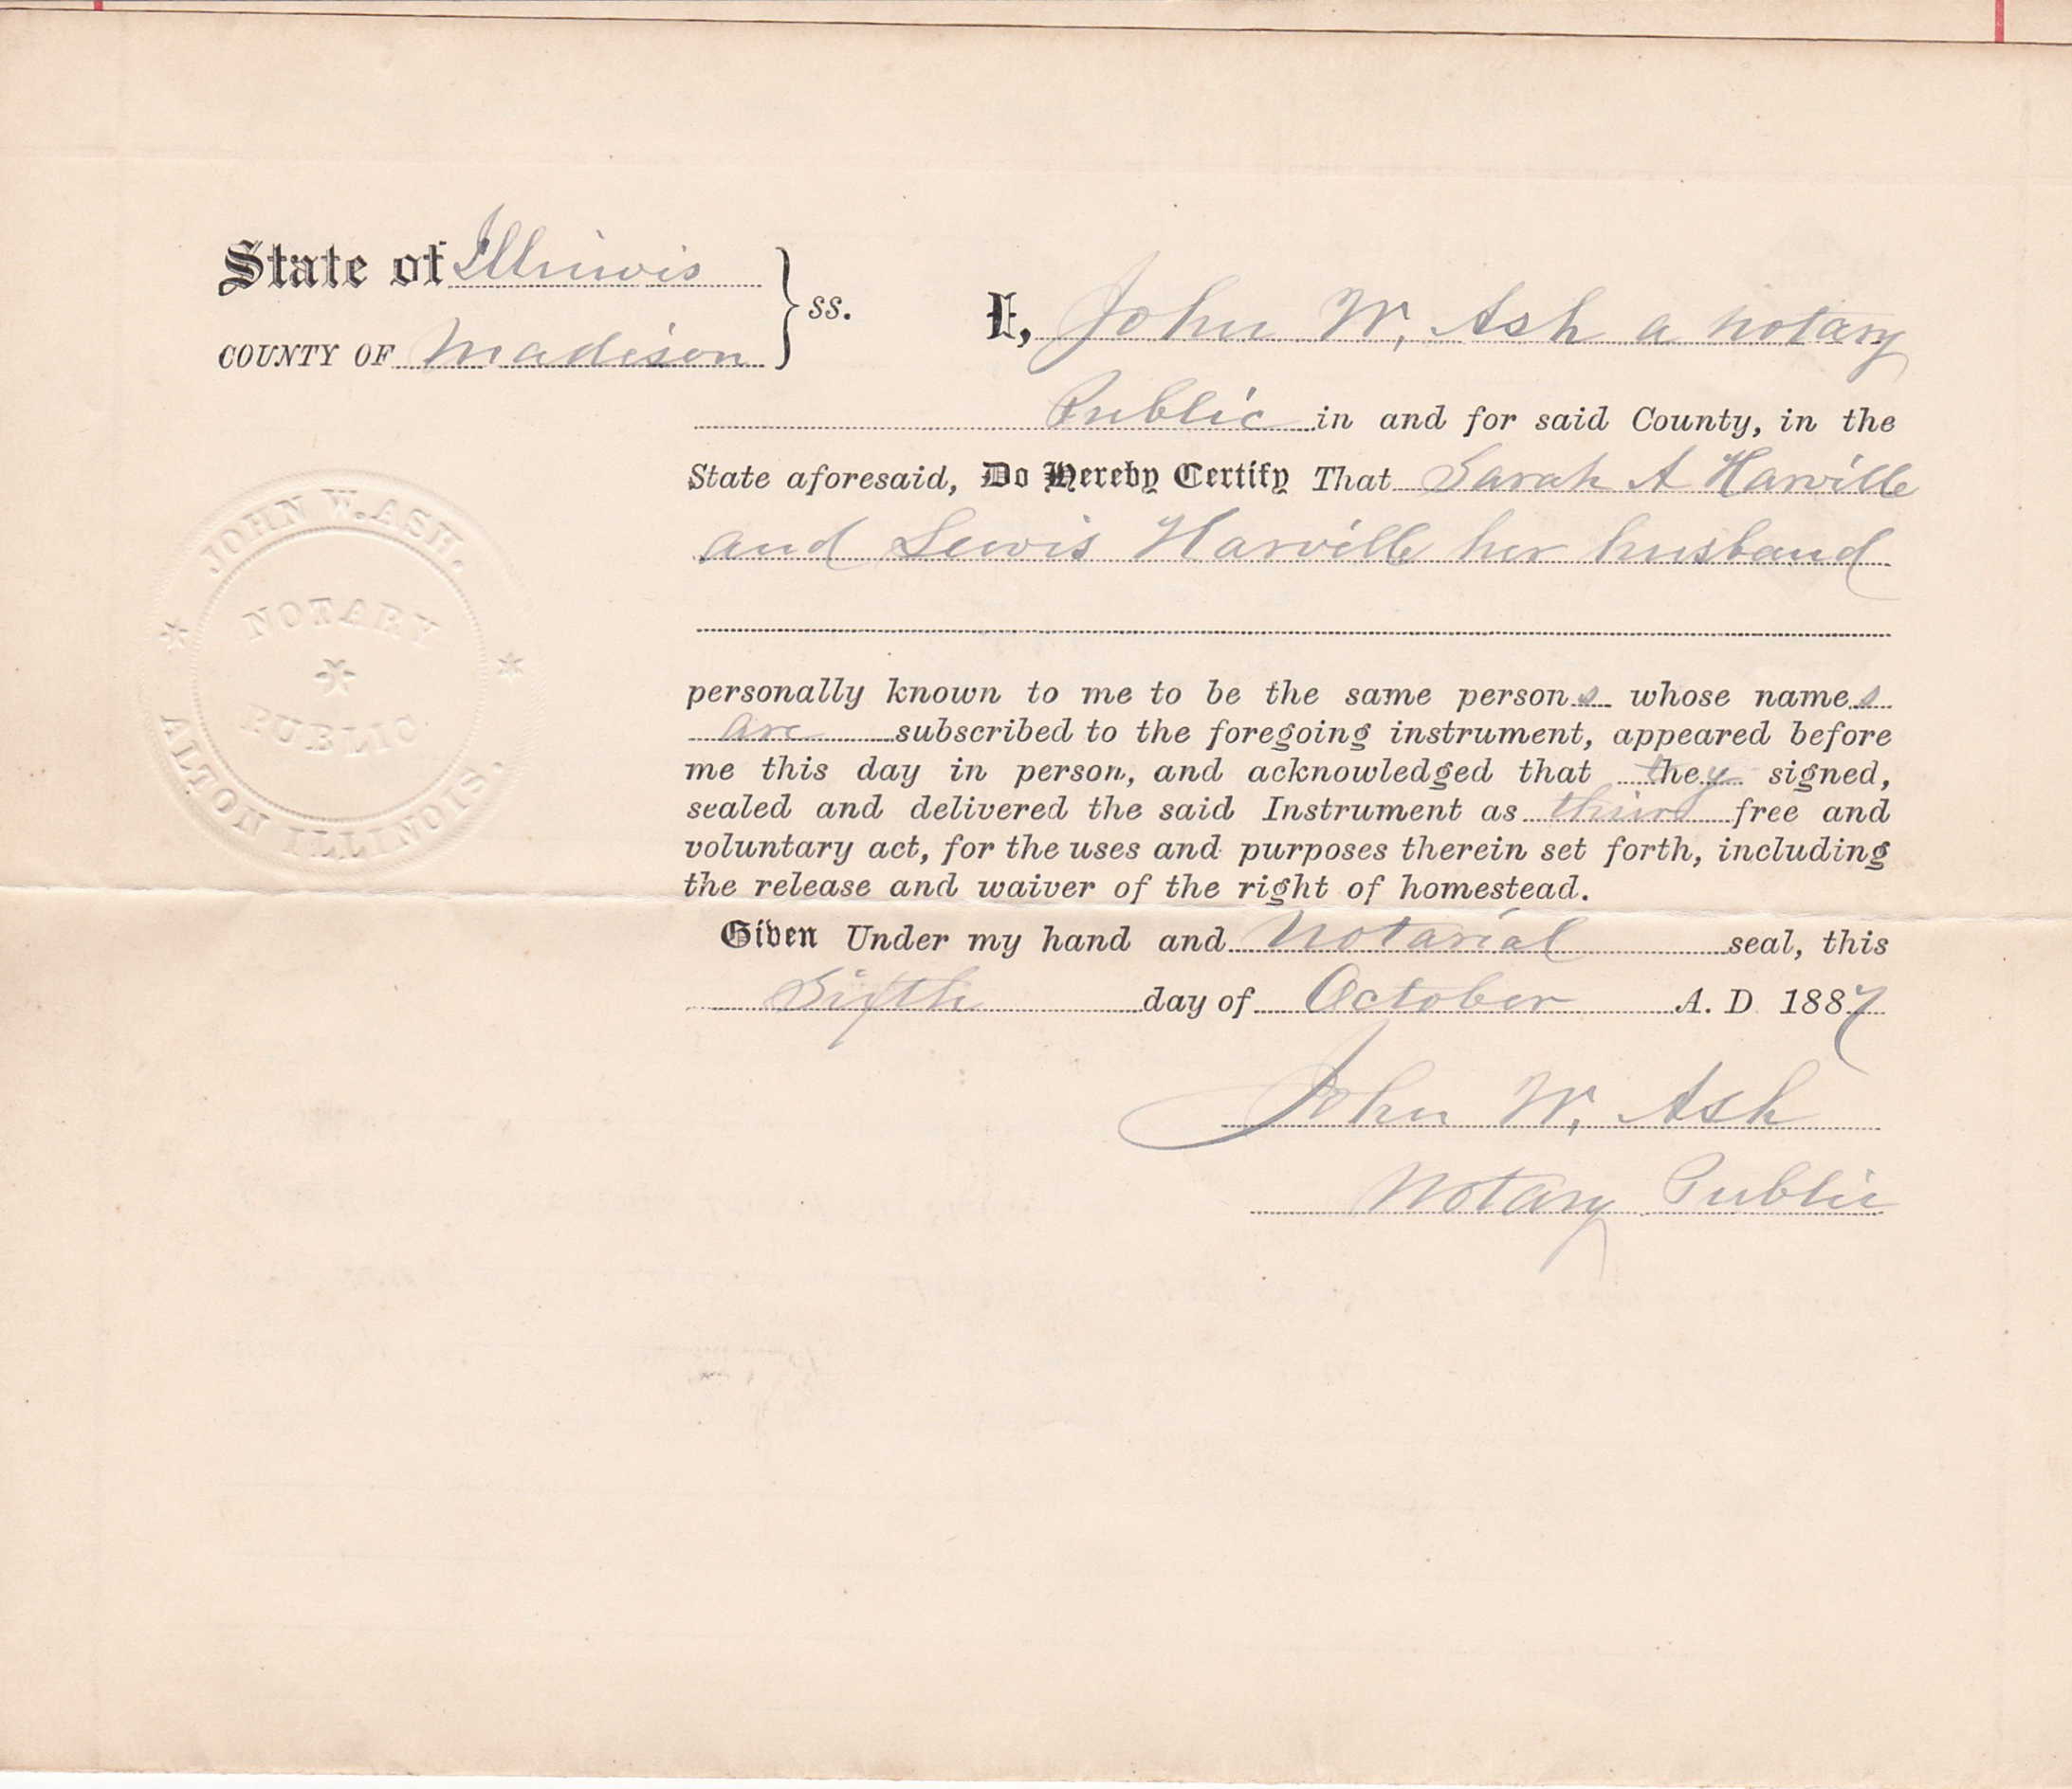 State of Illinois
COUNTY OF Madison
} ss.
I, John W. Ash a notary
Public in and for said County, in the
State aforesaid, Do Hereby Certify That Sarah A Harville
and Lewis Harville her husband
personally known to me to be the same persons whose names
are subscribed to the foregoing instrument, appeared before
me this day in person, and acknowledged that they signed,
sealed and delivered the said Instrument as free and
voluntary act, for the uses and purposes therein set forth, including
the release and waiver of the right of homestead.
Given Under my hand and Notarial seal, this
Sixth day of October A. D. 1887
John W. Ash
Notary Public
JOHN W. ASH.
NOTARY
PUBLIC
ALTON ILLINOIS.